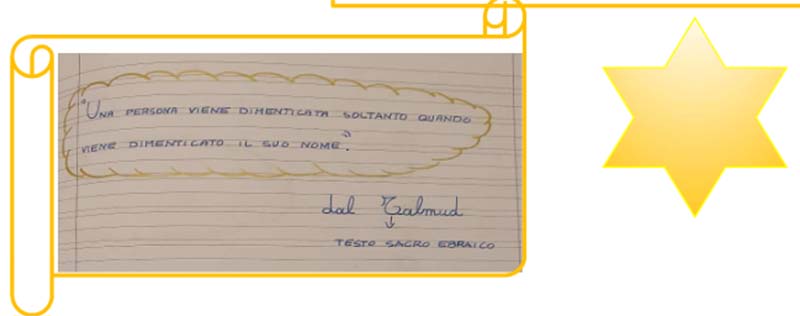 "UNA PERSONA VIENE DIMENTICATA SOLTANTO QUANDO
VIENE DIMENTICATO IL SUO NOME".
dal Talmud
↓
TESTO SACRO EBRAICO